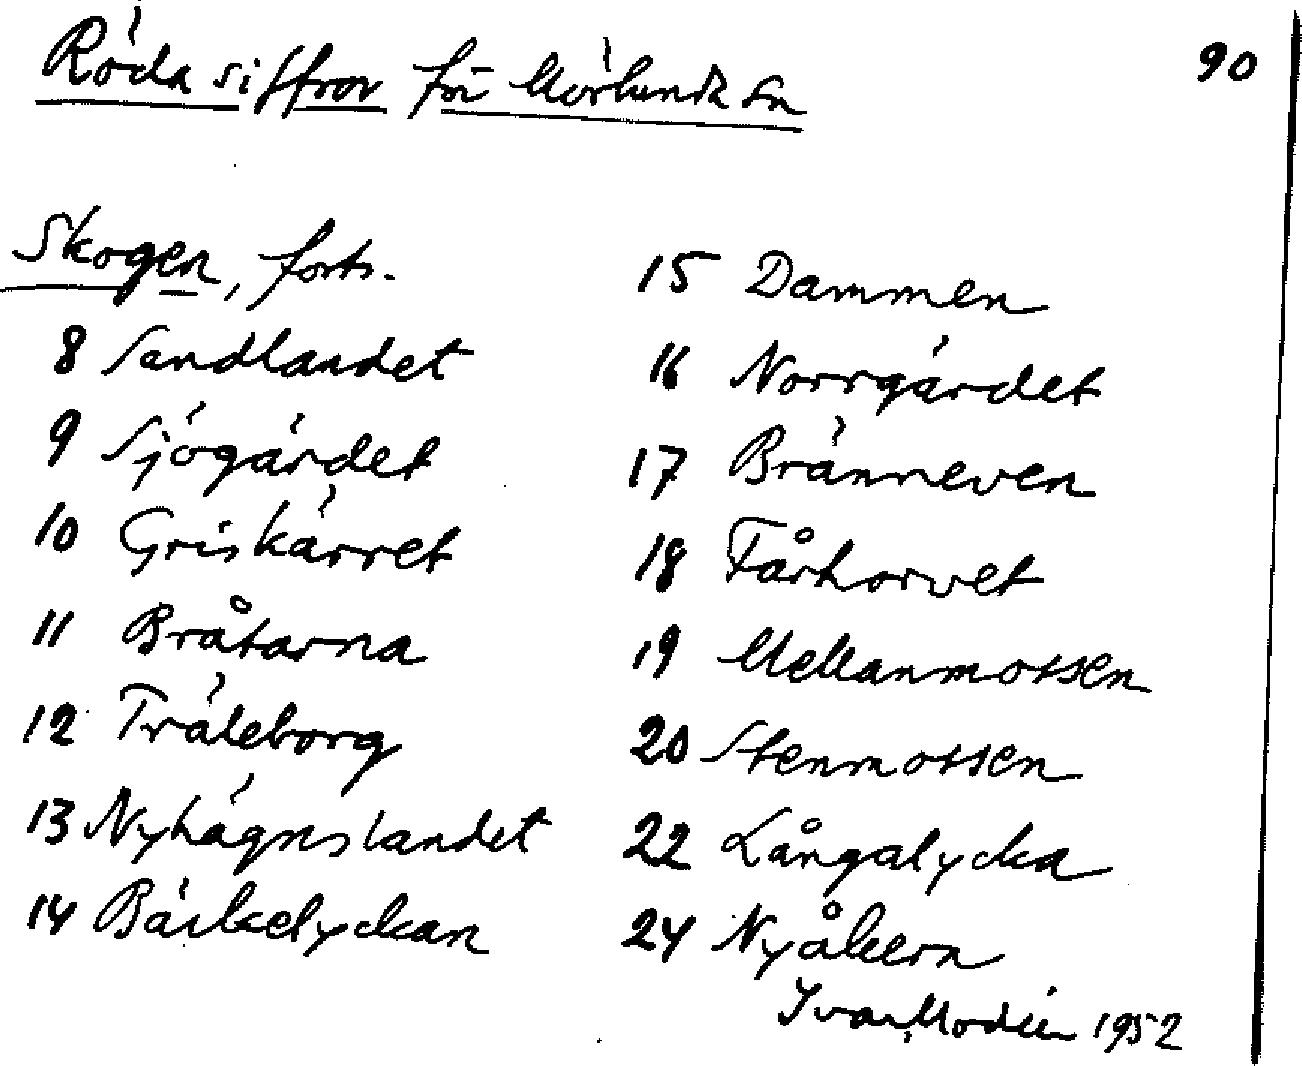 Röda siffror för Mörlunda sn
90
Skogen, forts.
8 Sandlandet
9 Sjögärdet
10 Griskärret
11 Bråtarna
12 Träleborg
13 Nyhägnslandet
14 Bärkelyckan
15 Dammen
16 Norrgärdet
17 Bränneven
18 Fårhorvet
19 Mellanmossen
20 Stenmossen
22 Långalycka
24 Nyåkern
Ivar Modéer 1952